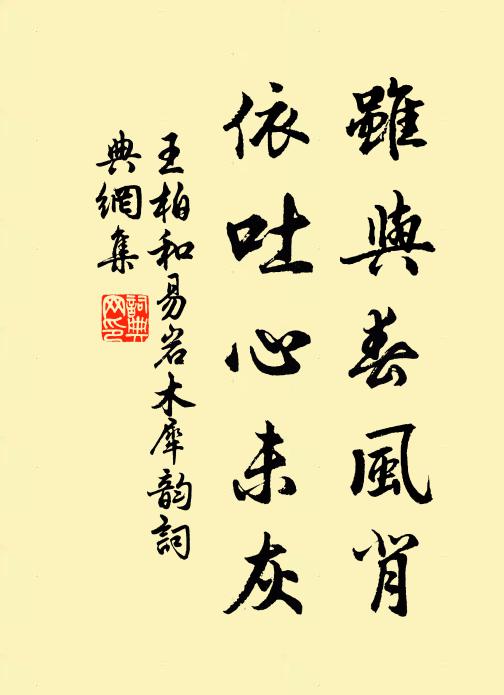 雖與春風背
依吐心未灰
王柏和易岩木犀韵詞
典網集
詞典網印